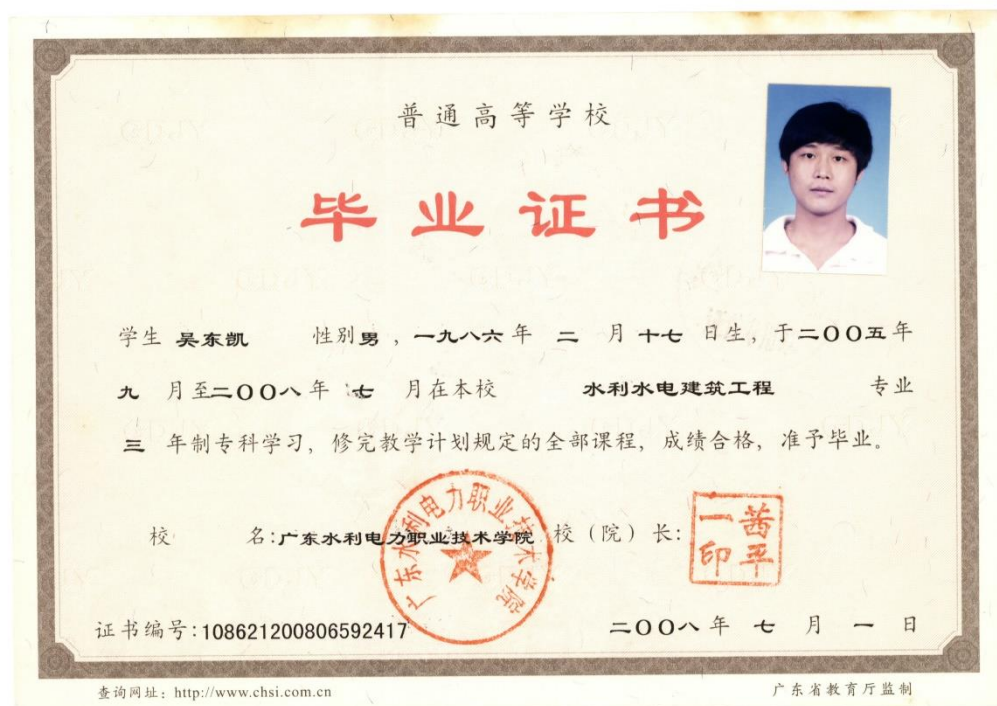 普通高等学校
毕业证书
学生 吴东凯 性别 男 ，一九八六 年 二 月 十七 日生，于二〇〇五年
九 月至二〇〇八 年 七 月在本校 水利水电建筑工程 专业
三 年制专科学习，修完教学计划规定的全部课程，成绩合格，准予毕业。
校 名：广东水利电力职业技术学院 校（院）长：
广东水利电力职业技术学院
茜平
一印
证书编号：108621200806592417
二〇〇八 年 七 月 一 日
查询网址：http://www.chsi.com.cn
广东省教育厅监制